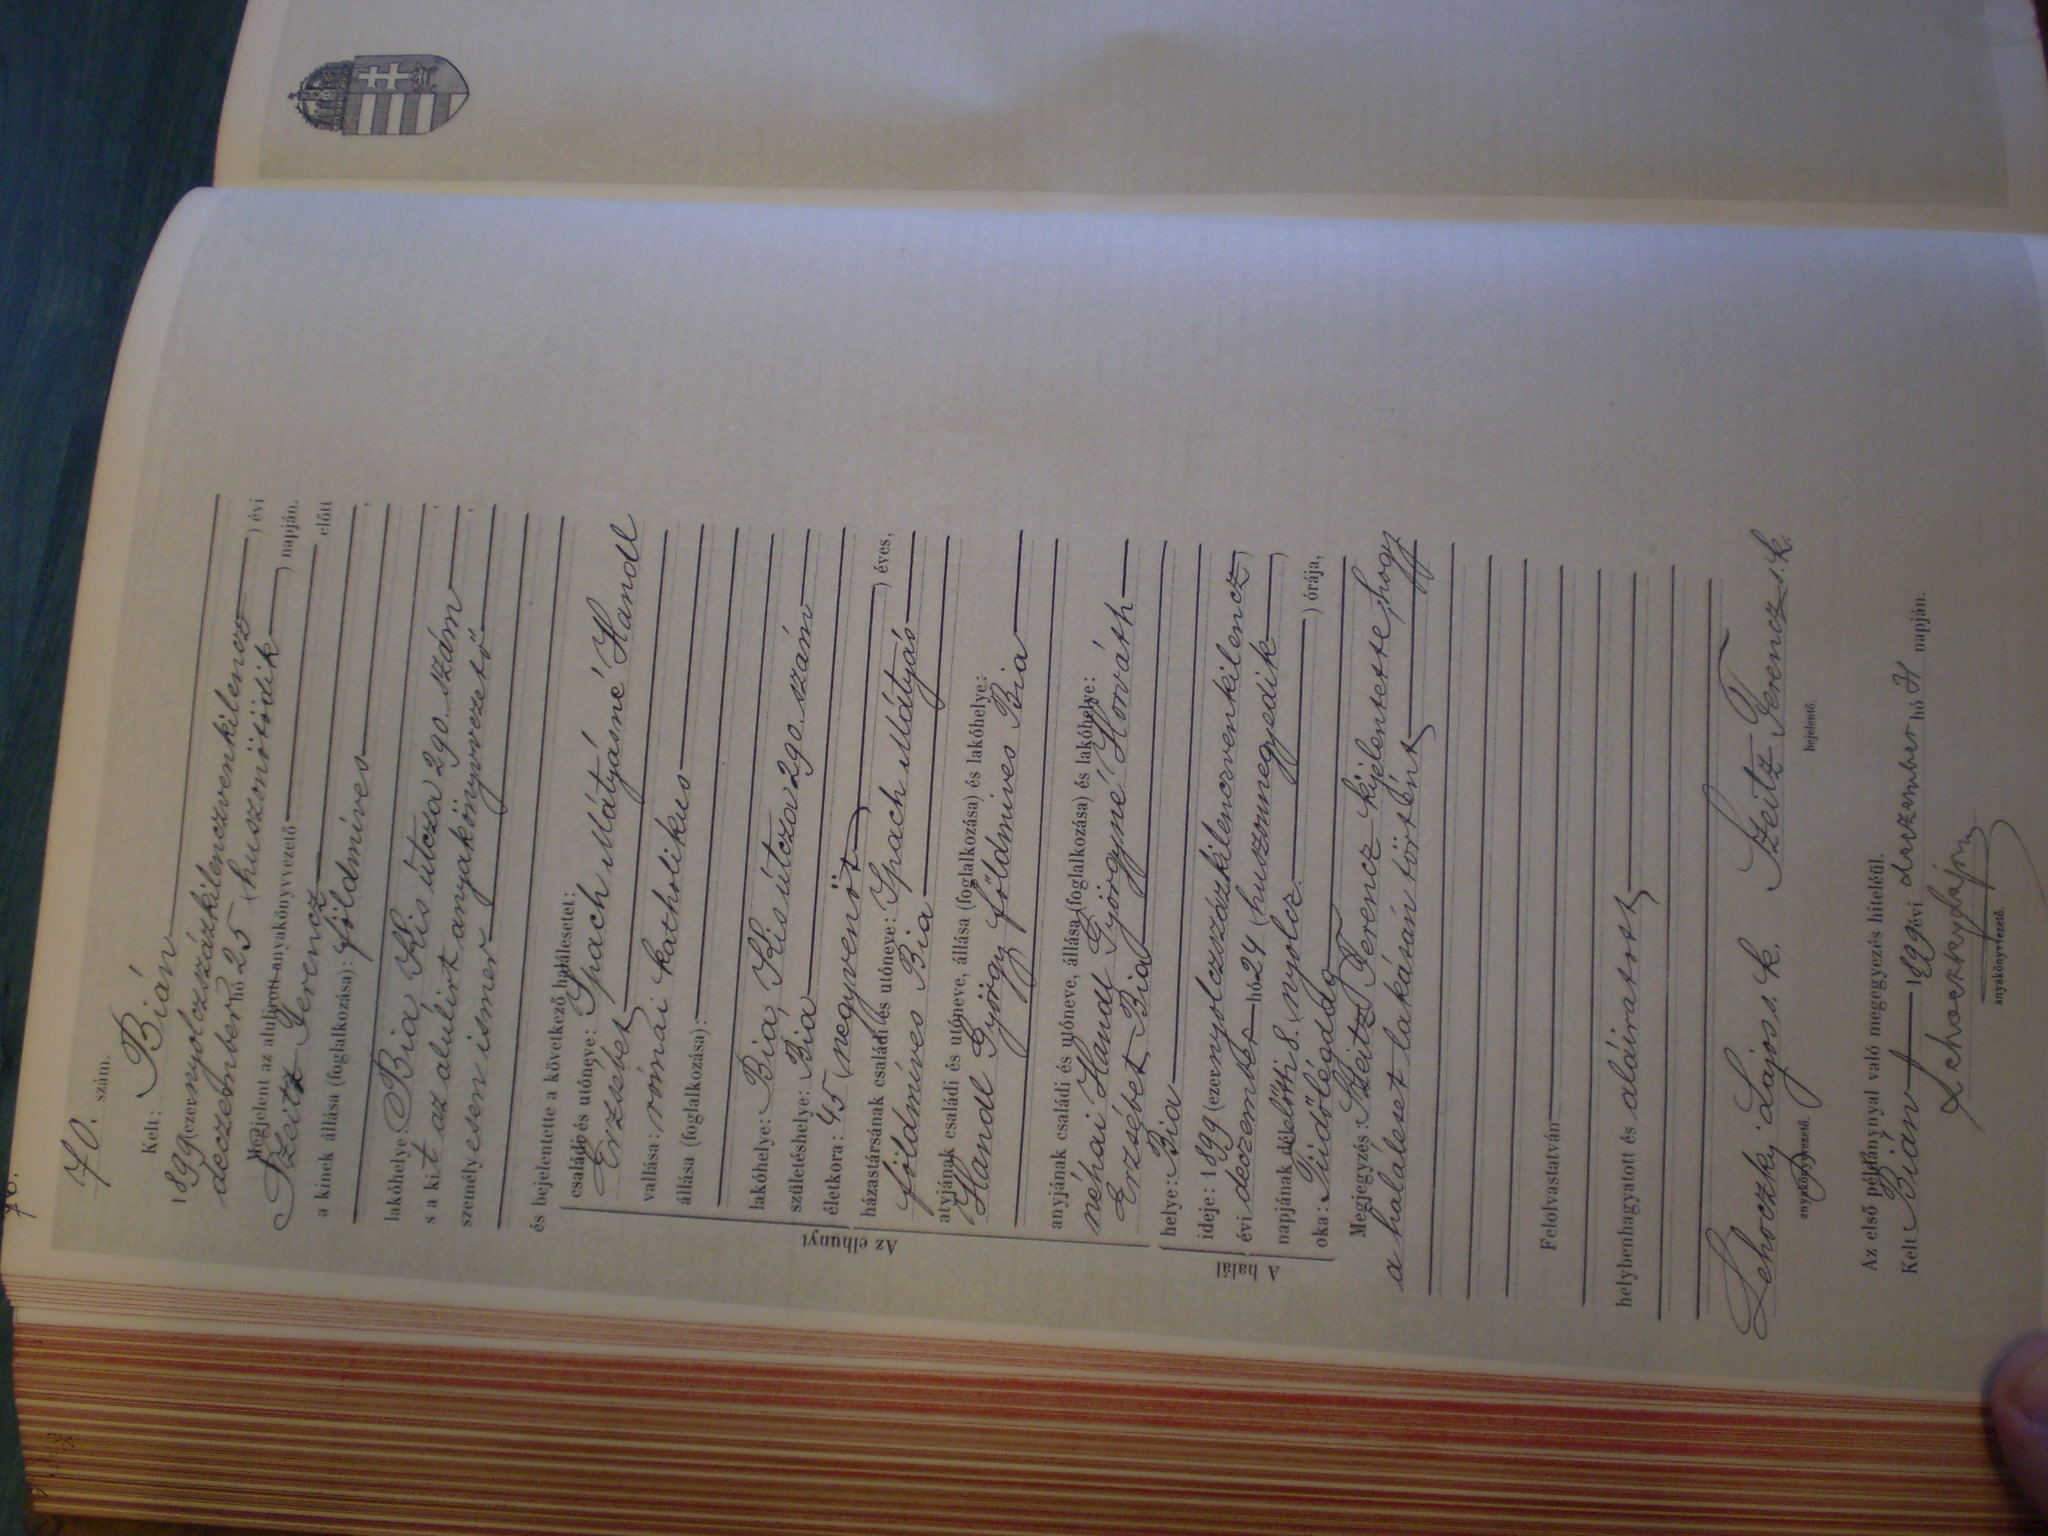 70. szám.
Kelt: Bián
1899 (ezernyolczszázkilenczvenkilencz ) évi
deczember hó 25 (huszonötödik ) napján.
Megjelent az alulirott anyakönyvvezető előtt
Szeitz Ferencz
a kinek állása (foglalkozása): földmíves ,
lakóhelye: Bia Kis útcza 290. szám ,
s a kit az alúlirt anyakönyvvezető ,
személyesen ismer
és bejelentette a következő halálesetet:
Az elhunyt
családi és utóneve: Spach Mátyásné Handl
Erzsébet
vallása: római katholikus
állása (foglalkozása):
lakóhelye: Bia, Kis útcza 290. szám
születéshelye: Bia
életkora: 45 (negyvenöt ) éves,
házastársának családi és utóneve: Spach Mátyás
földmíves Bia
atyjának családi és utóneve, állása (foglalkozása) és lakóhelye:
Handl György földmives Bia
anyjának családi és utóneve, állása (foglalkozása) és lakóhelye:
néhai Handl Györgyné Horváth
Erzsébet Bia
A halál
helye: Bia
ideje: 1899 (ezernyolczszázkilenczvenkilencz)
évi deczember hó 24 (huszonnegyedik )
napjának délelőtti 8. (nyolcz. ) órája,
oka: Tüdőlégdag
Megjegyzés: Szeitz Ferencz kijelentette, hogy
a haláleset lakásán történt
Felolvastatván
helybenhagyatott és aláiratott
Lehoczky Lajos s. k. Szeitz Ferencz s. k.
anyakönyvvezető. bejelentő.
Az első példánynyal való megegyezés hiteléül.
Kelt Bián 1899 évi deczember hó napján.
Lehoczky Lajos
anyakönyvvezető.